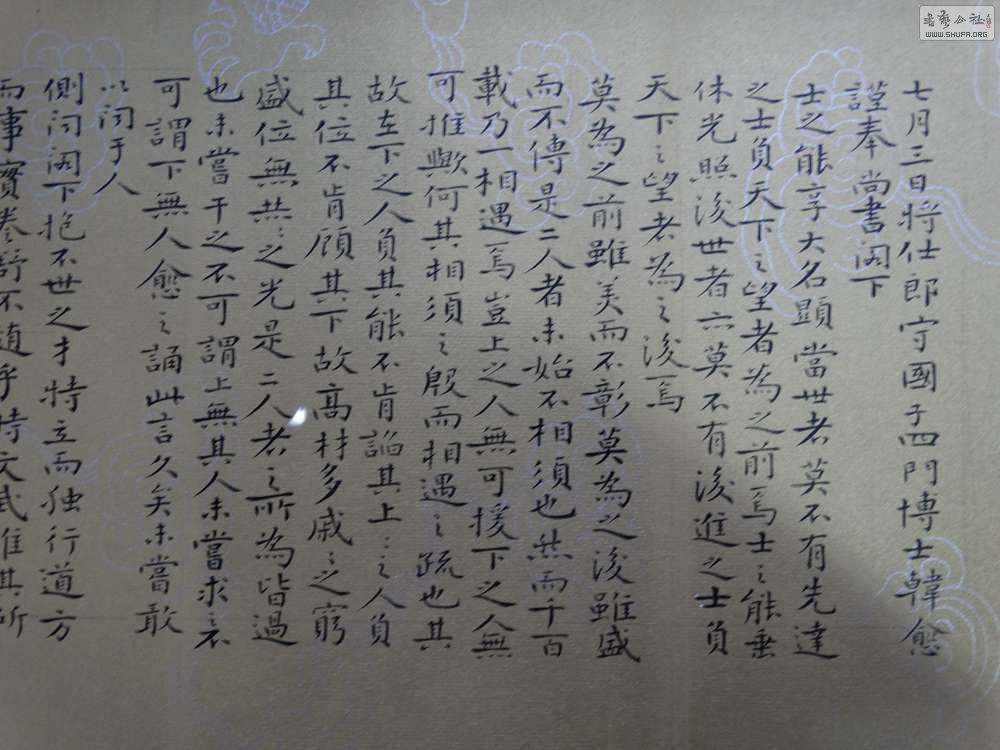 七月三日将仕郎守國子四門博士韓愈
謹奉 尚書阁下
士之能享大名顕當世者莫不有先達
之士負天下之望者為之前焉士之能垂
休光照後世者亦莫不有後進之士負
天下之望者為之後焉
莫為之前雖美而不彰莫為之後雖盛
而不傳是二人者未始不相須也然而千百
載乃一相遇焉豈上之人無可援下之人無
可推歟何其相須之殷而相遇之疏也其
故在下之人負其能不肯諂其上〻之人負
其位不肯顧其下故高材多戚〻之窮
盛位無赫〻之光是二人者之所為皆過
也未嘗干之不可謂上無其人未嘗求之不
可謂下無人愈之誦此言久矣未嘗敢
以闻于人
側闻阁下抱不世之才特立而独行道方
而事實卷舒不随乎時文武唯其所
WWW.SHUFA.ORG